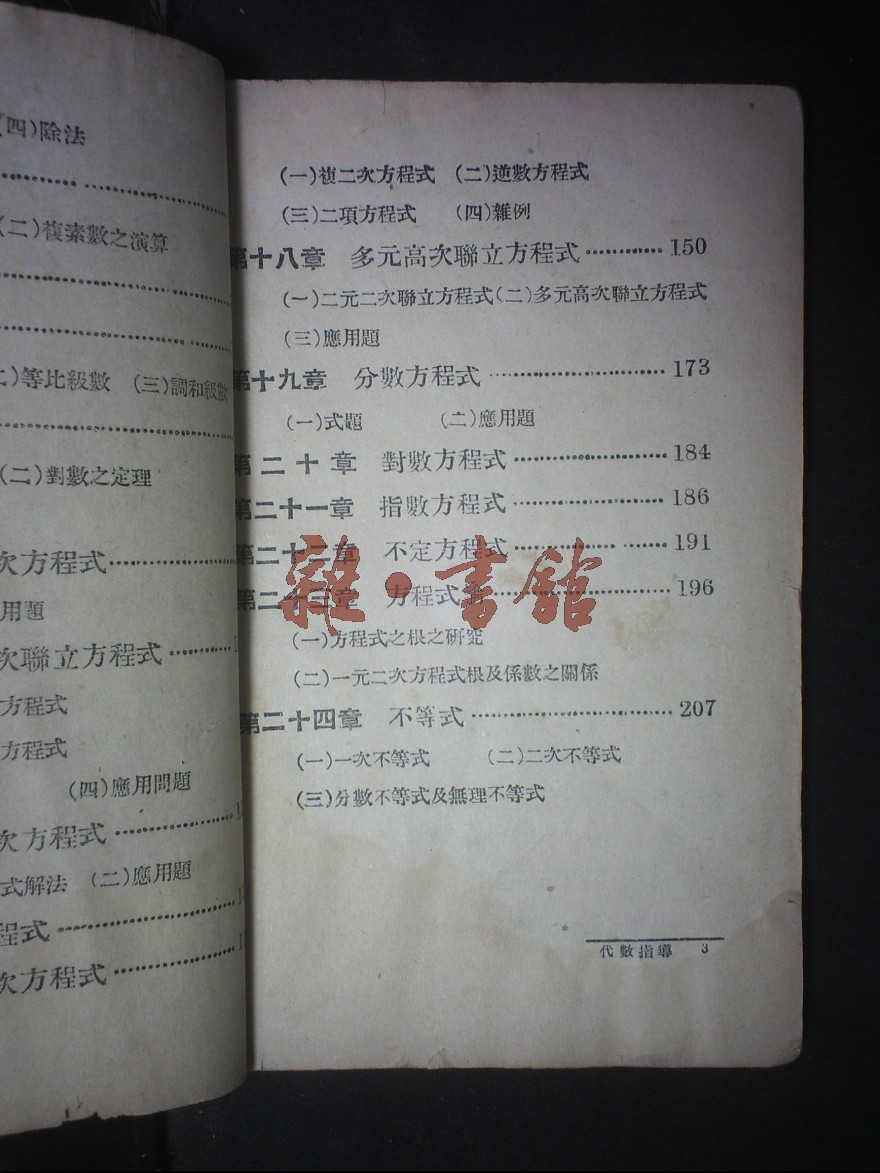 (四)除法
(二)複素數之演算
等比級數 (三)調和級數
(二)對數之定理
次方程式
用題
次聯立方程式
方程式
方程式
(四)應用問題
次方程式
式解法 (二)應用題
程式
次方程式
(一)複二次方程式 (二)逆數方程式
(三)二項方程式 (四)雜例
第十八章 多元高次聯立方程式…………150
(一)二元二次聯立方程式(二)多元高次聯立方程式
(三)應用題
第十九章 分數方程式…………173
(一)式題 (二)應用題
第二十章 對數方程式…………184
第二十一章 指數方程式…………186
第二十二章 不定方程式…………191
第二十三章 方程式…………196
雜·書館
(一)方程式之根之研究
(二)一元二次方程式根及係數之關係
第二十四章 不等式…………207
(一)一次不等式 (二)二次不等式
(三)分數不等式及無理不等式
代數指導 3